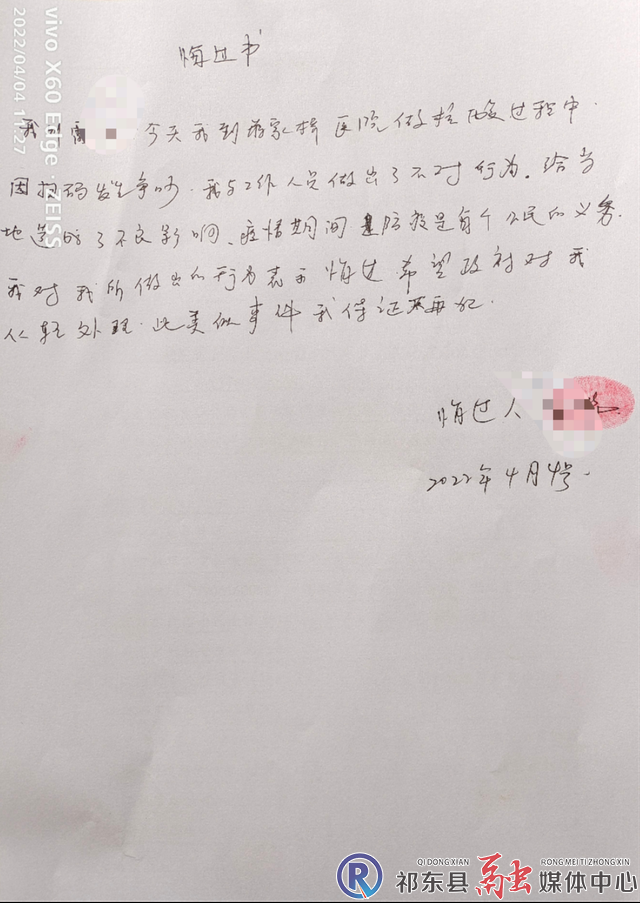 悔过书
我 今天我到蒋家桥医院做核酸过程中.
因扫码发生争吵.我与工作人员做出了不对行为.给当
地造成了不良影响、疫情期间 防疫是每个公民的义务.
我对我所做出的行为表示悔过希望政府对我
从轻处理.此类似事件我保证不再犯.
悔过人
2022年4月4号.
vivo X60 Edge · ZEISS
2022/04/04 11:27
QI DONG XIAN RONG MEI TI ZHONG XIN
祁东县融媒体中心